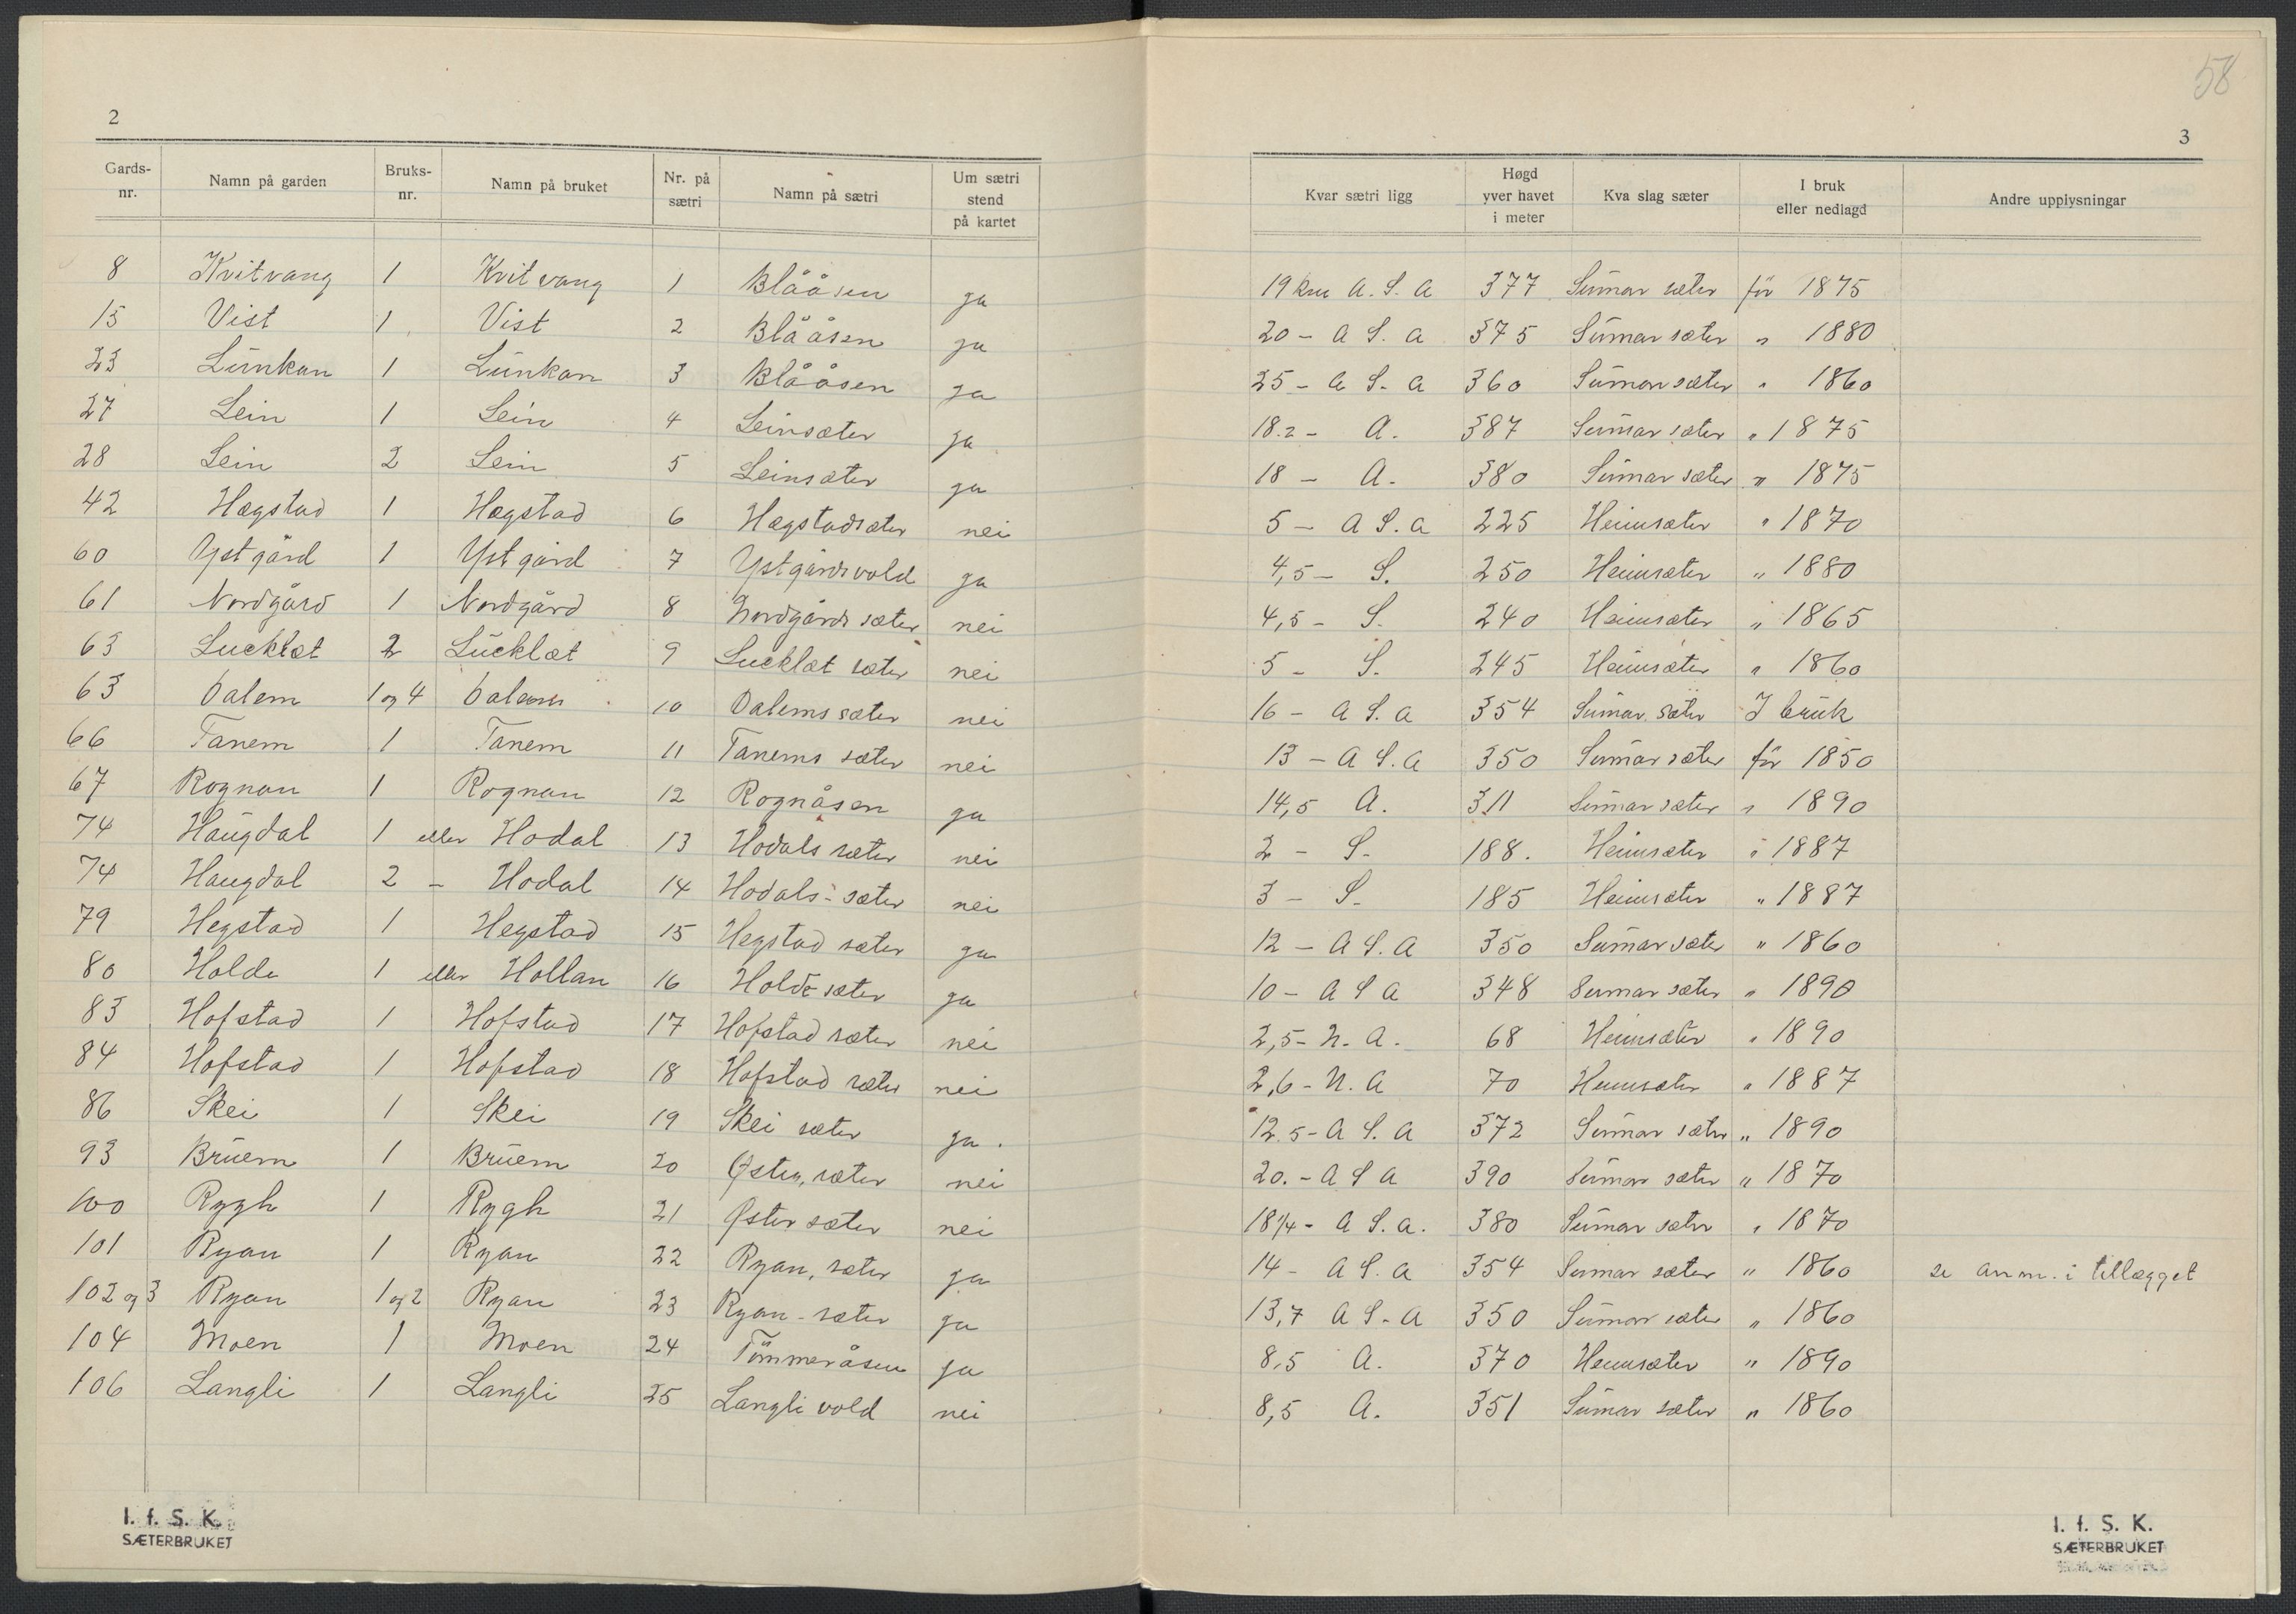 58
2
3
Gards-nr. Namn på garden Bruks-nr. Namn på bruket Nr. på sætri Namn på sætri Um sætri stend på kartet Kvar sætri ligg Høgd yver havet i meter Kva slag sæter I bruk eller nedlagd Andre upplysningar
8 Kvitvang 1 Kvitvang 1 Blååsen ja 19 km A. S. A 377 Sümar sæter før 1875
15 Vist 1 Vist 2 Blååsen ja 20 - A S. A 375 Sümar sæter " 1880
23 Lünkan 1 Lünkan 3 Blååsen ja 25 - A S. A 360 Sümar sæter " 1860
27 Lein 1 Lein 4 Leinsæter ja 18.2 - A. 387 Sümar sæter " 1875
28 Lein 2 Lein 5 Leinsæter ja 18 - A. 380 Sümar sæter " 1875
42 Hægstad 1 Hægstad 6 Hægstadsæter nei 5 - A S. A 225 Heimsæter " 1870
60 Ystgård 1 Ystgård 7 Ystgårdsvold ja 4,5 - S. 250 Heimsæter " 1880
61 Nordgård 1 Nordgård 8 Nordgårds sæter nei 4,5 - S. 240 Heimsæter " 1865
63 Lucklæt 2 Lücklæt 9 Lucklæt sæter nei 5 - S. 245 Heimsæter " 1860
63 Dalem 1 og 4 Dalem 10 Dalems sæter nei 16 - A S. A 354 Sümar sæter I brük
66 Tanem 1 Tanem 11 Tanems sæter nei 13 - A S. A 350 Sümar sæter før 1850
67 Rognan 1 Rognan 12 Rognåsen ja 14,5 A. 311 Sümar sæter " 1890
74 Haügdal 1 eller Hodal 13 Hodals sæter nei 2 - S. 188. Heimsæter " 1887
74 Haügdal 2 - Hodal 14 Hodals-sæter nei 3 - S. 185 Heimsæter " 1887
79 Hegstad 1 Hegstad 15 Hegstad sæter ja 12 - A S. A 350 Sümar sæter " 1860
80 Holde 1 eller Hollan 16 Holde sæter ja 10 - A S A 348 Sümar sæter " 1890
83 Hofstad 1 Hofstad 17 Hofstad sæter nei 2,5 - N. A. 68 Heimsæter " 1890
84 Hofstad 1 Hofstad 18 Hofstad sæter nei 2,6 - N. A 70 Heimsæter " 1887
86 Skei 1 Skei 19 Skei sæter ja. 12.5 - A S. A 372 Sümar sæter " 1890
93 Brüem 1 Brüem 20 Øster, sæter nei 20. - A S A 390 Sümar sæter " 1870
100 Rygh 1 Rygh 21 Øster sæter nei 18 1/4 - A S. A. 380 Sümar sæter " 1870
101 Ryan 1 Ryan 22 Ryan, sæter ja 14 - A S. A 354 Sümar sæter " 1860 se anm. i tillægget
102 og 3 Ryan 1 og 2 Ryan 23 Ryan-sæter ja 13,7 A S. A 350 Sümar sæter " 1860
104 Moen 1 Moen 24 Tømmeråsen ja 8,5 A. 370 Heimsæter " 1890
106 Langli 1 Langli 25 Langli vold nei 8,5 A. 351 Sümar sæter " 1860
I. f. S. K.
SÆTERBRUKET
I. f. S. K.
SÆTERBRUKET